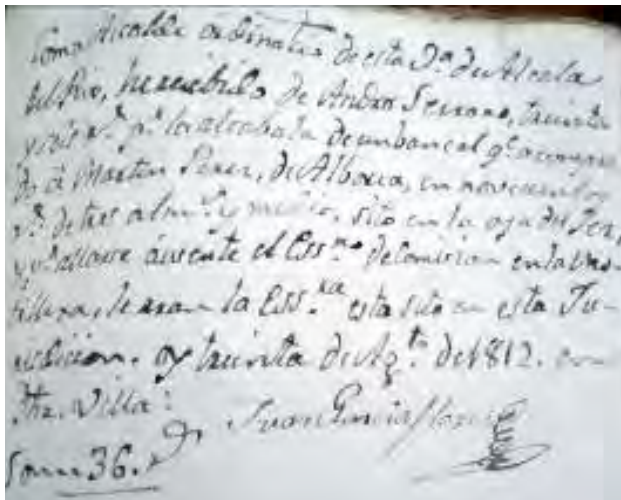 Como Alcalde ordinario de esta V.ª de Alcala
del Rio, he recibido de Andres Serrano, treinta
y seis r.s p.r la alcabala de un bancal q.e a compra
do á Martin Perez, de Alboxea, en novecientos
r.s de tres alm.s y medio, sito en la oja del
y p.r allarse ausente el Ess.no de Comision en la
le aran la Ess.ra esta sito en esta Ju-
risdicion. oy treinta de Ag.to de 1812. en
dha. Villa:
Juan Garcia
Son 36. r.s